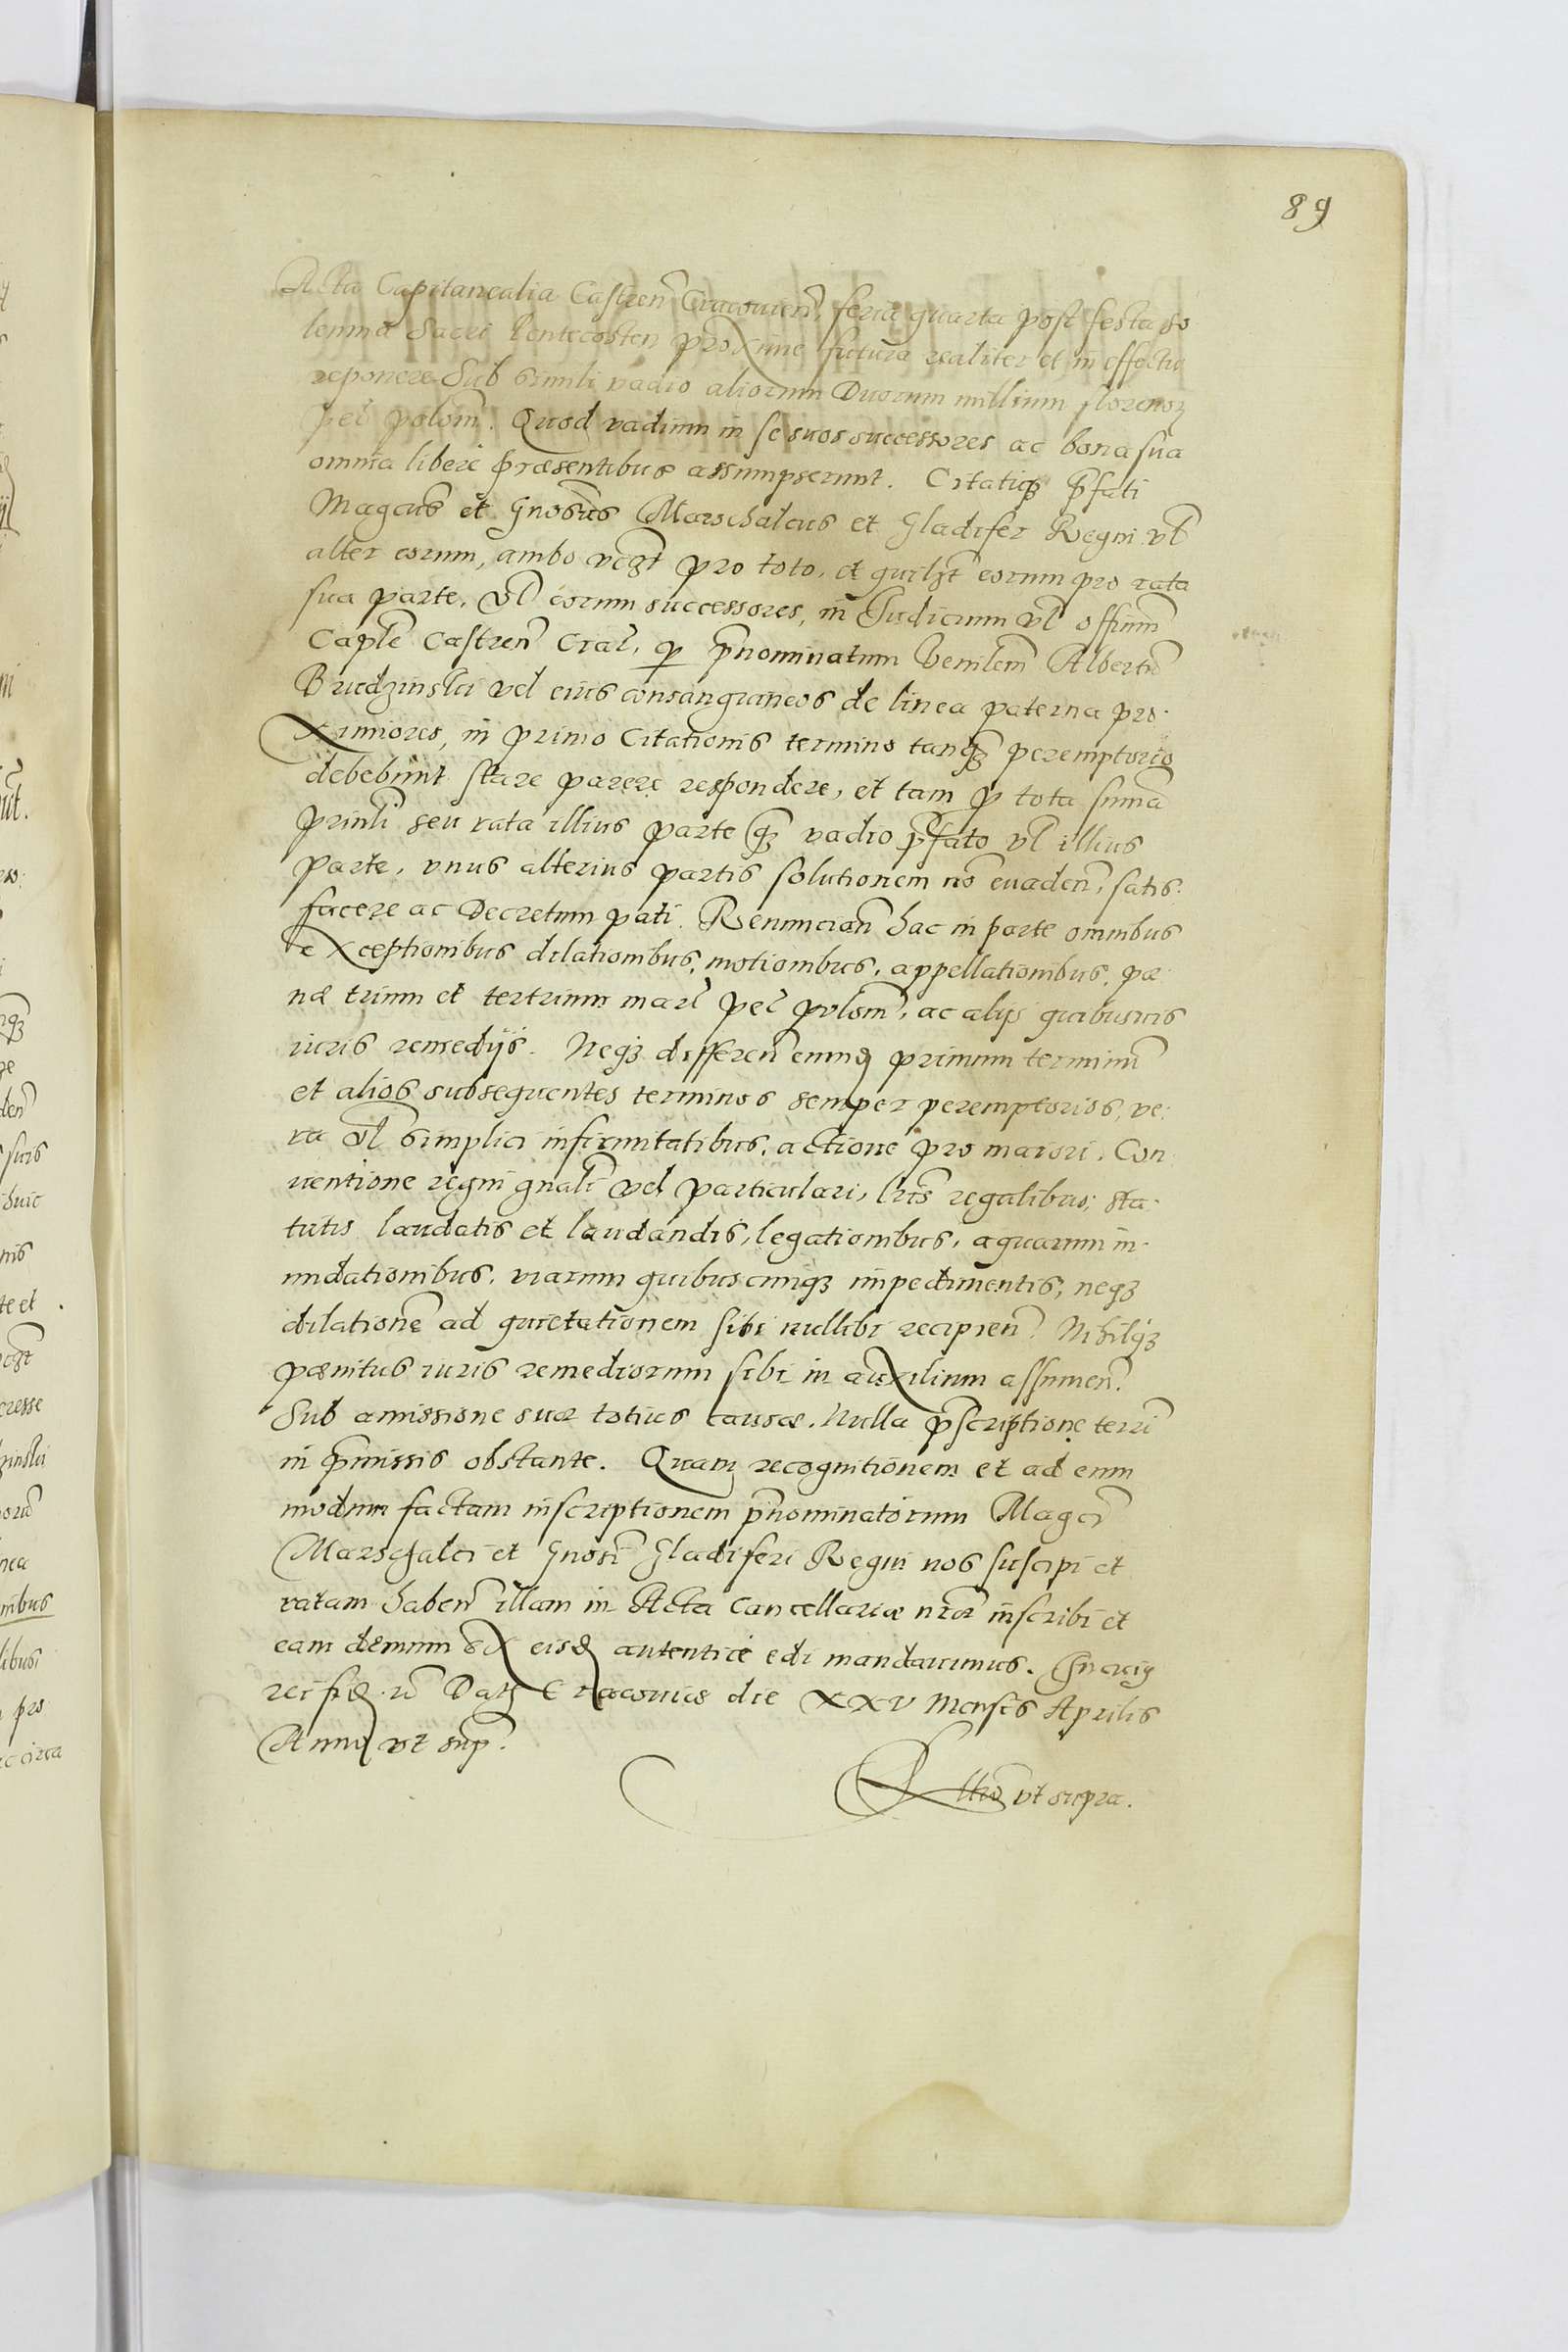 89
Acta Capitanealia Castren̄ Cracovien̄, feria quarta post festa so
lenna Sacri Pentecosten proxime futura realiter et in effectu
reponere. Sub simili vadio aliorum Duorum millium florenoꝝ
pec̄ polon̄. Quod vadium in se suos successores ac bona sua
omnia libere præsentibus assumpserunt. Citatiqꝫ p̄fati
Magcus et Gnosus Marschalcus et Gladifer Regni vl̄
alter eorum, ambo pro toto, et quilꝫt eorum pro rata
sua parte, vl̄ eorum successores, in Iudicium vl̄ offium̄
Capl̄e Castren̄ Crac̄, p̄nominatum Venilem̄ Albertū
Brudzinski vel eius consanguineos de linea paterna pro
ximiores, in primo Citationis termino tanqꝫ peremptorio
debebunt stare parere respondere, et tam p tota sum̄a
prin̄li seu rata illius parte qꝫ vadio p̄fato vl̄ illius
parte, vnus alterius partis solutionem nō evaden̄, satis
facere ac Decretum pati. Renuncian̄ hac in parte omnibus
exceptionibus dilationibus, motionibus, appellationibus, pæ
næ trium et tertrium marc̄ pec̄ polon̄, ac alijs quibusuis
iuris remedijs. Neqꝫ differen̄ primum terminū
et alios subsequentes terminos semper peremptorios, ve
ra vl̄ simplici infirmitatibus, actione pro maiori, Con
uentione regni gnali vel particulari, lr̄is regalibus, sta
tutis laudatis et laudandis, legationibus, aquarum in
undationibus, viarum quibuscunqꝫ impedimentis, neqꝫ
dilationē ad quietationem sibi nullibi recipien̄. Nihilqꝫ
pænitus iuris remediorum sibi in auxilium assumen̄.
Sub amissione suæ totius causæ. Nulla p̄scriptione terr̄i
in p̄missis obstante. Quam recognitionem et ad eum
modum factam inscriptionem p̄nominatorum Magci
Marschalci et Gnosi Gladiferi Regni nos suscipi et
ratam haben̄ illam in Acta Cancellariæ nr̄æ inscribi et
eam demum ex eisd autentice edi mandauimus. In cuiꝰ
rei fid Datꝫ Cracouiæ die XXV Mensis Aprilis
Anno vt sup̄.
vt supra.